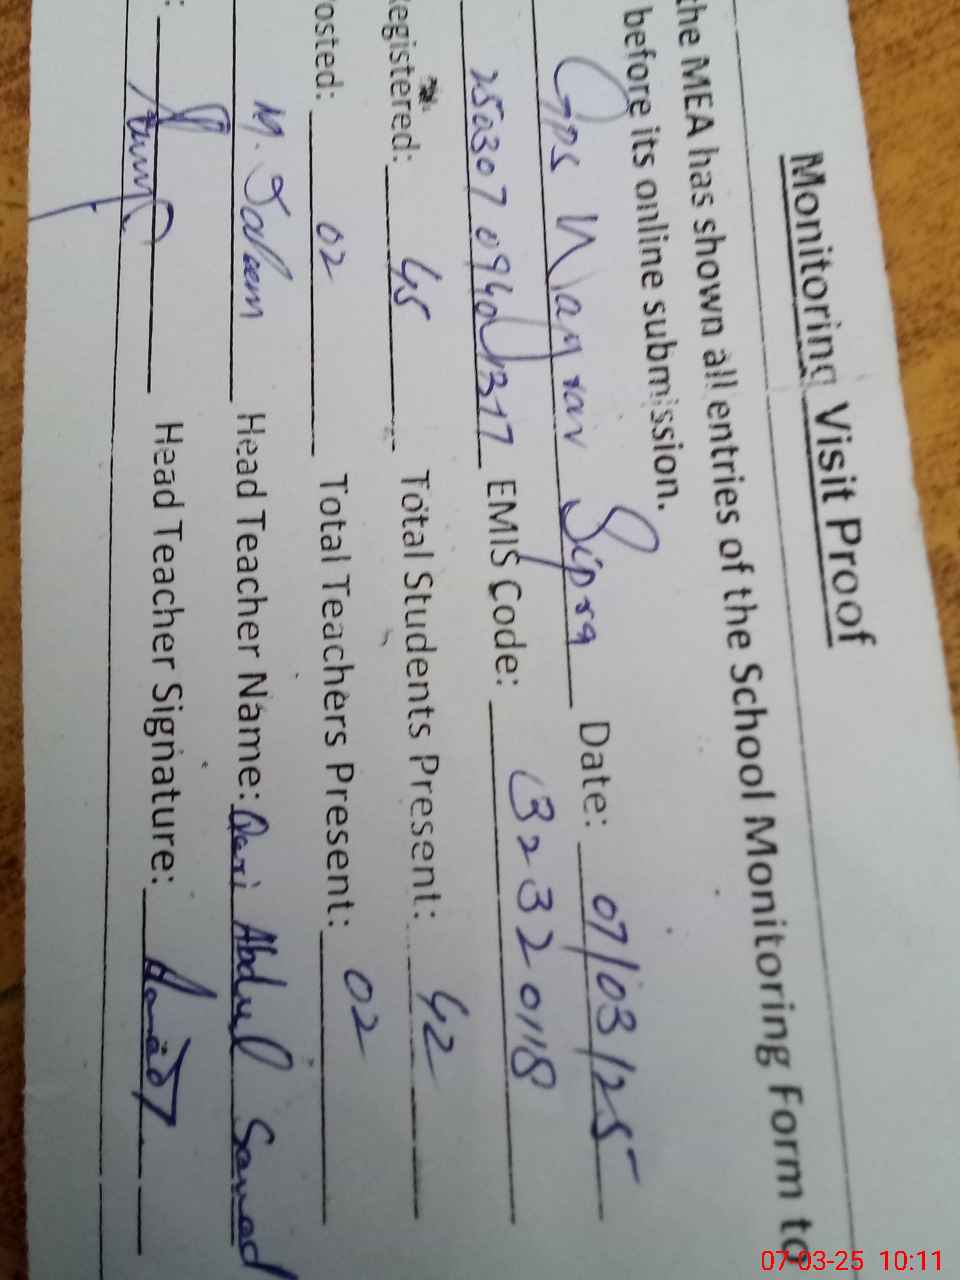 Monitoring Visit Proof
the MEA has shown all entries of the School Monitoring Form to
before its online submission.
GPS Date: 07/03/25
EMIS Code: 32320118
egistered: 45 Total Students Present: 42
osted: 02 Total Teachers Present: 02
M. Saleem Head Teacher Name: Qari Abdul Samad
: Head Teacher Signature:
07-03-25 10:11